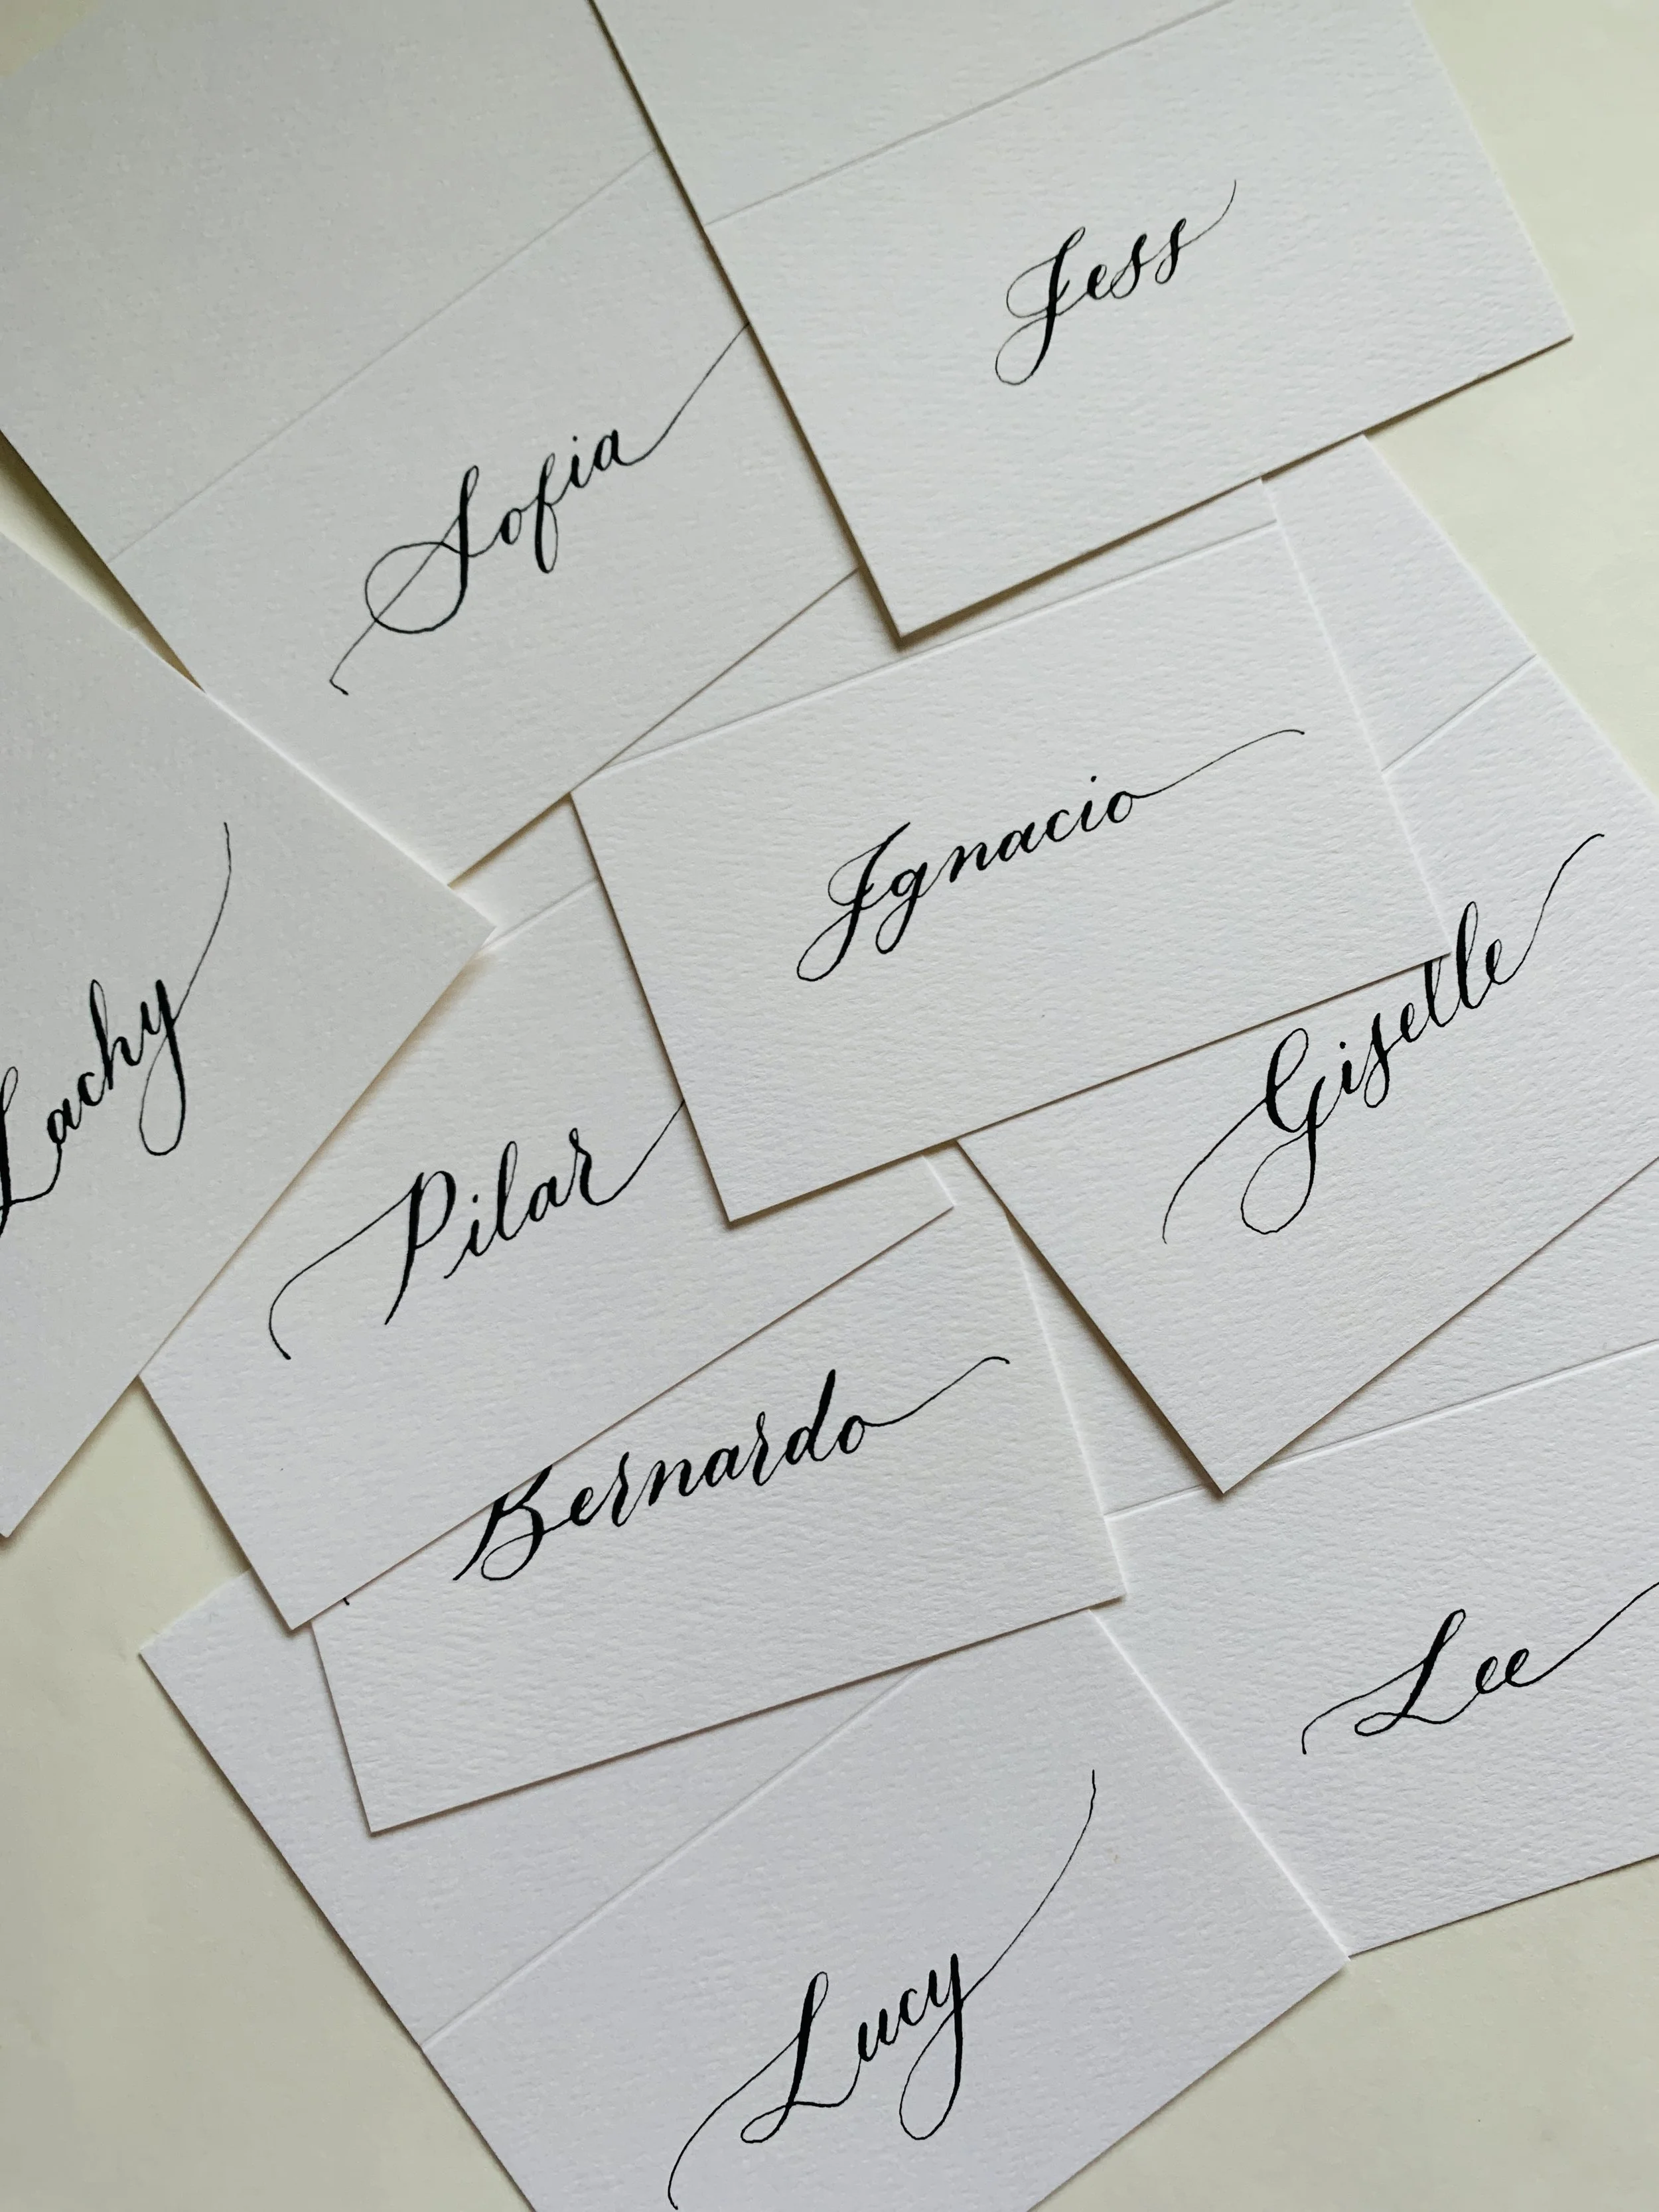 Jess
Sofia
Ignacio
Giselle
Lachy
Pilar
Bernardo
Lee
Lucy